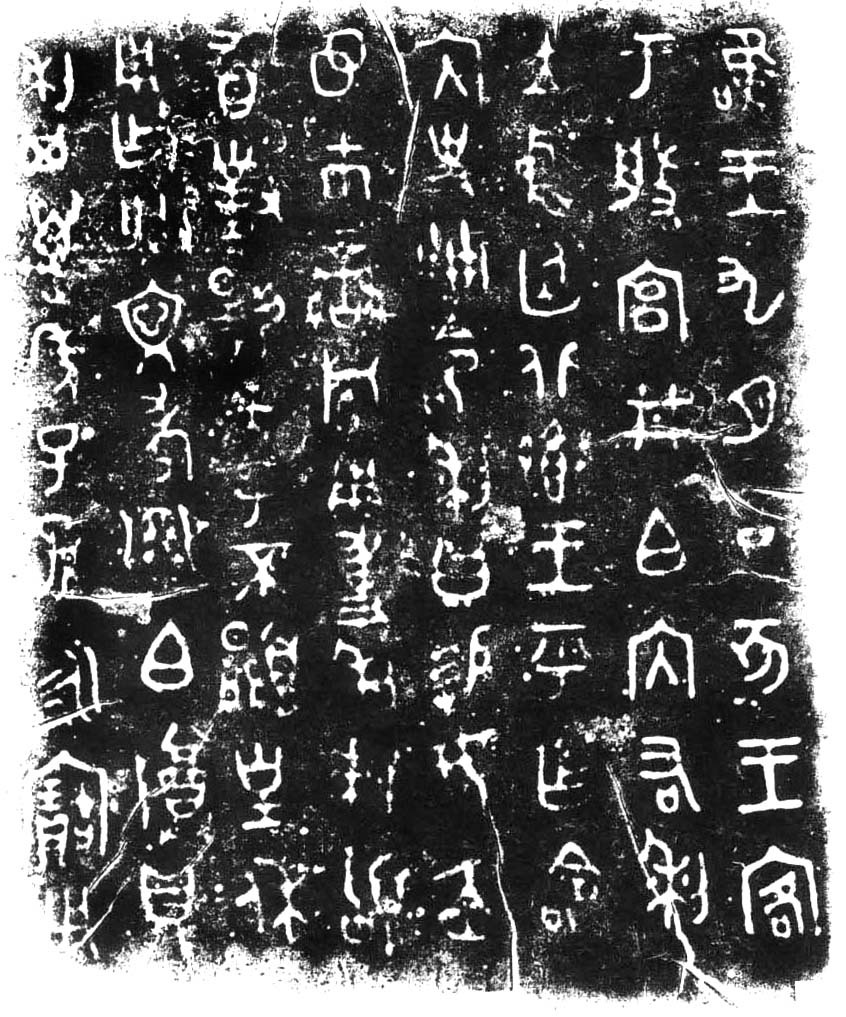 唯王九月丁亥王客
于般宮井白內右利
立中廷北鄉王乎乍命
內史冊令利曰易女赤
巿䜌旂用事利拜𩒨
首對揚天子不顯皇休
用乍朕文考白尊鼎
利其萬年子孫永寶用